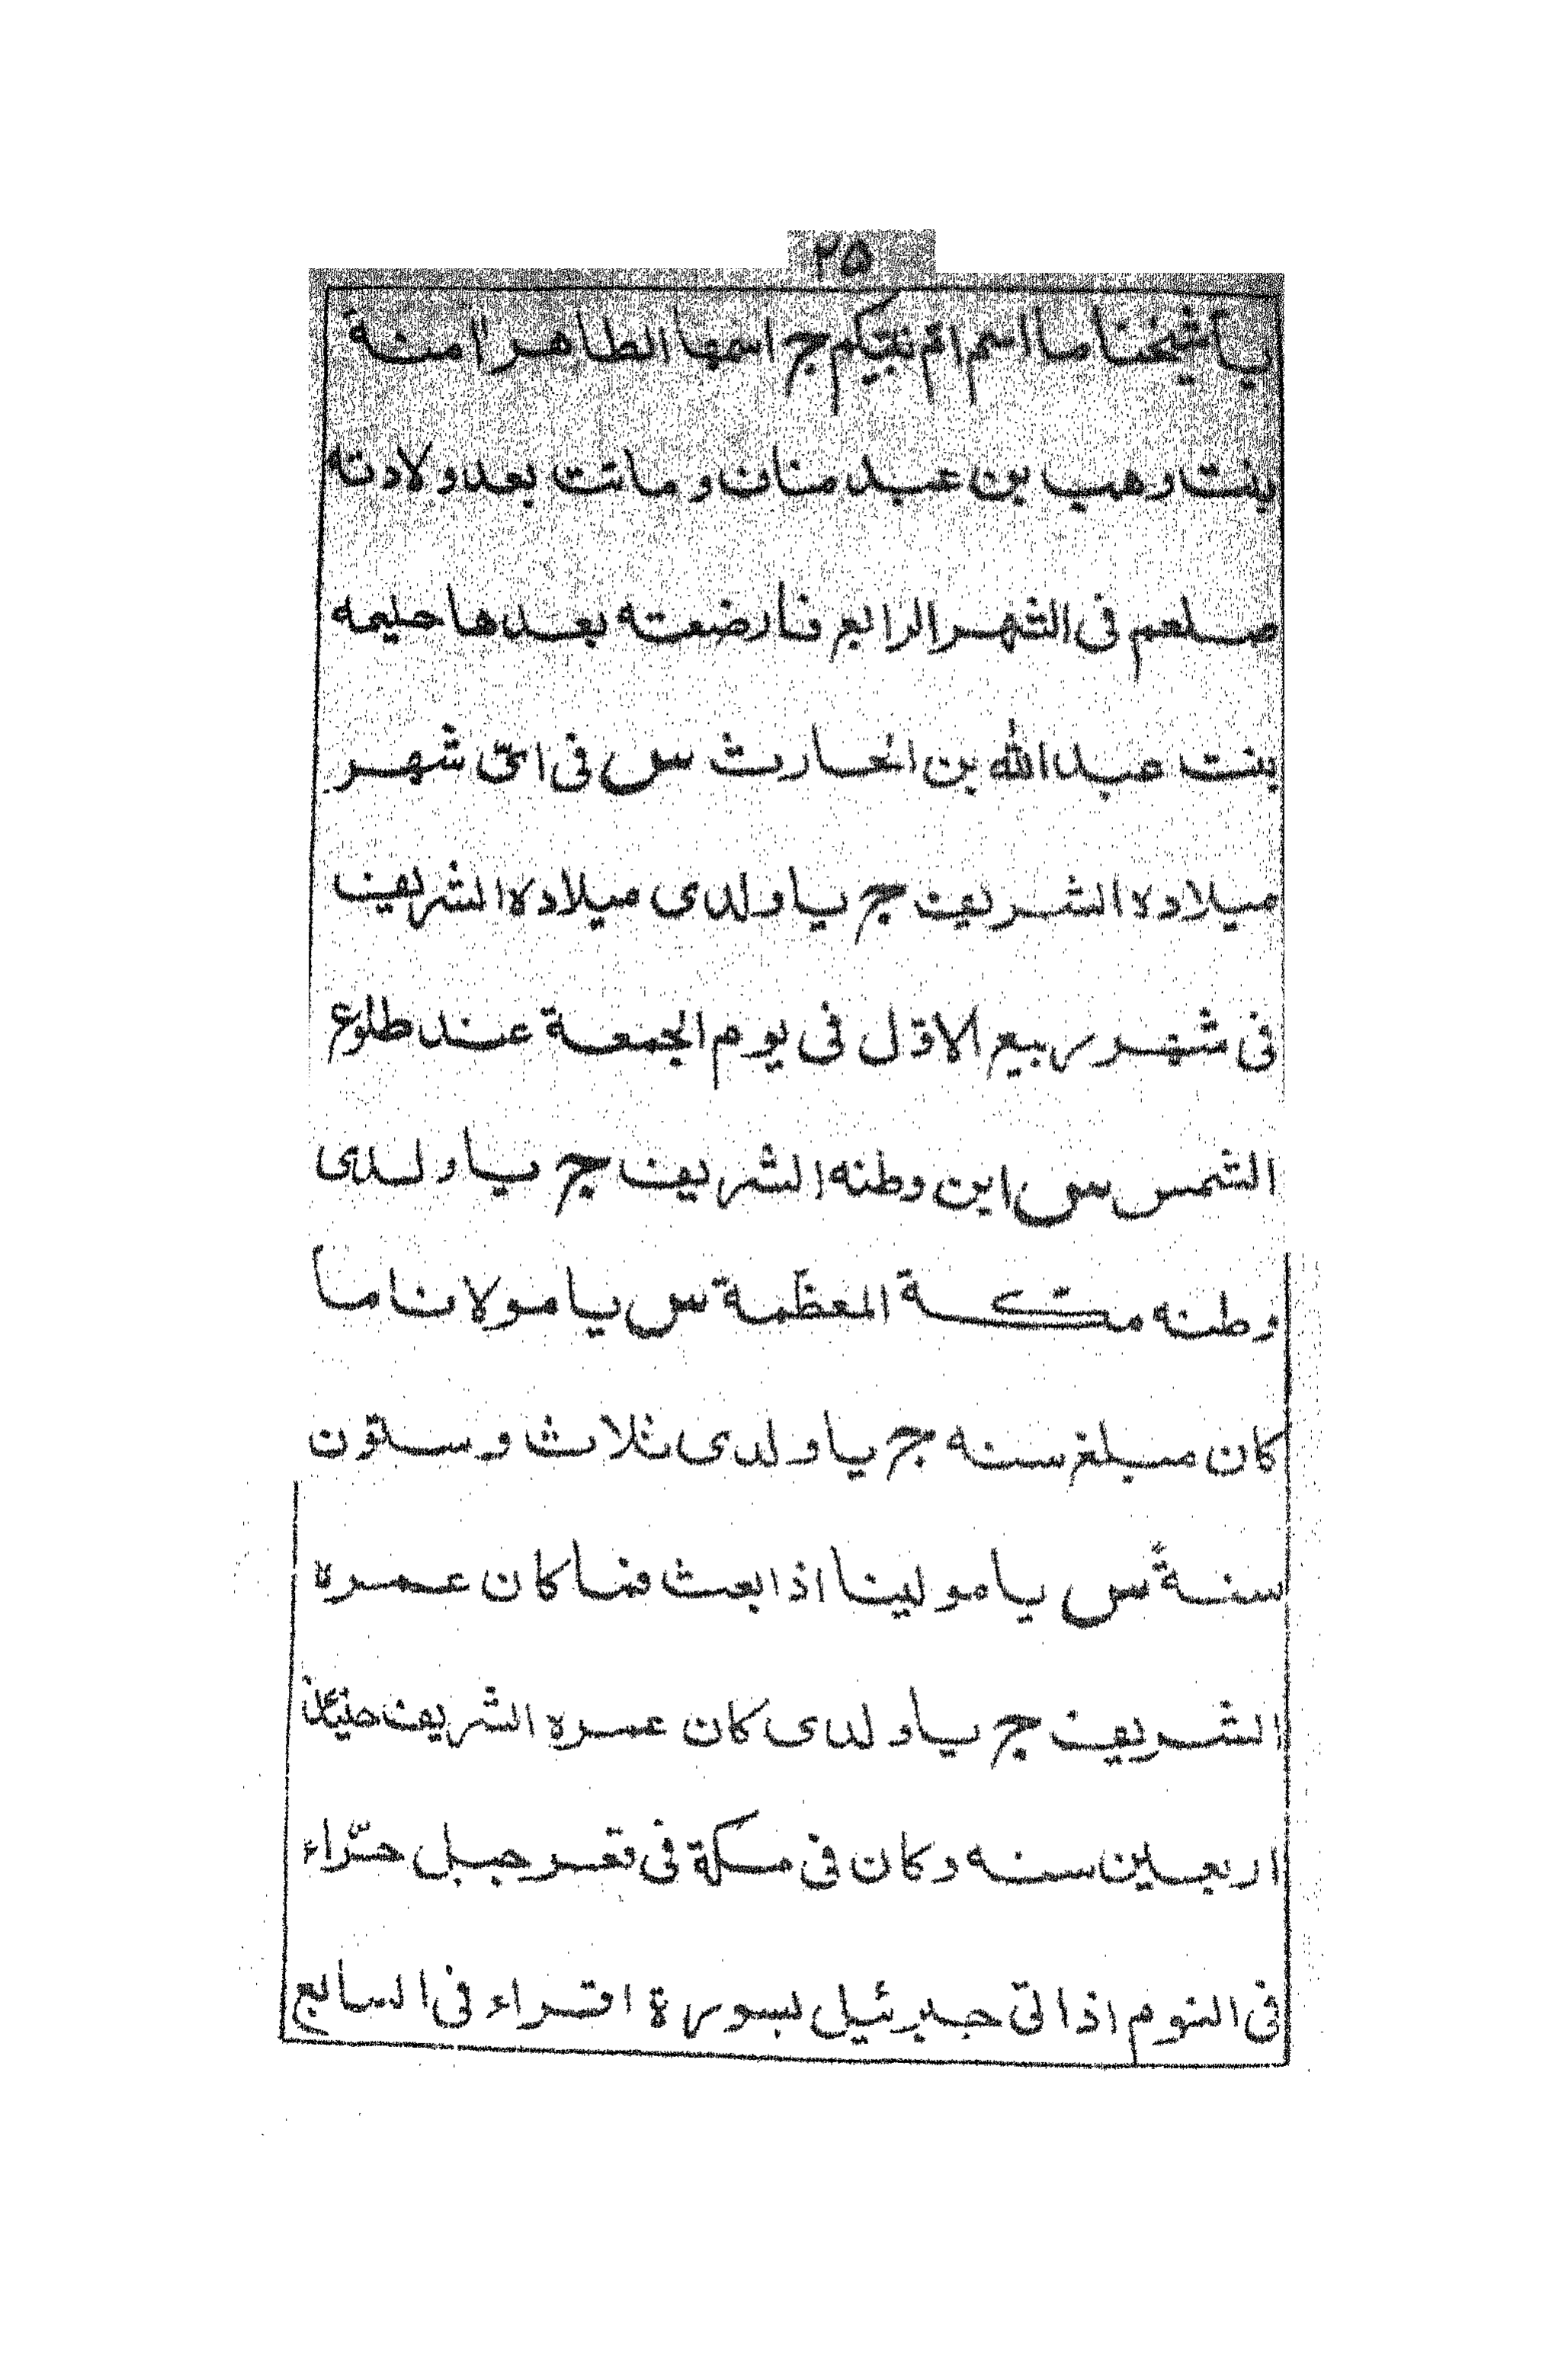 ٢٥
يا شيخنا ما اسم امّ نبيّكم ج اسمها الطاهر اٰمنة
بنت وهب بن عبد مناف و ماتت بعد ولادته
صلعم فى الشهر الرابع فارضعته بعدها حليمه
بنت عبد الله بن الحارث س فى اىّ شهر
ميلاده الشريف ج يا ولدى ميلاده الشريف
فى شهر ربيع الاوّل فى يوم الجمعة عند طلوع
الشمس س اين وطنه الشريف ج يا ولدى
وطنه مكّة المعظّمة س يا مولانا ما
كان مبلغ سنه ج يا ولدى ثلاث و ستون
سنةً س يا مولينا اذا بعث فما كان عمره
الشريف ج يا ولدى كان عمره الشريف حينئذ
اربعين سنه و كان فى مكة فى قعر جبل حرّاء
فى النوم اذا اتى جبرئيل بسورة اقراء فى السابع